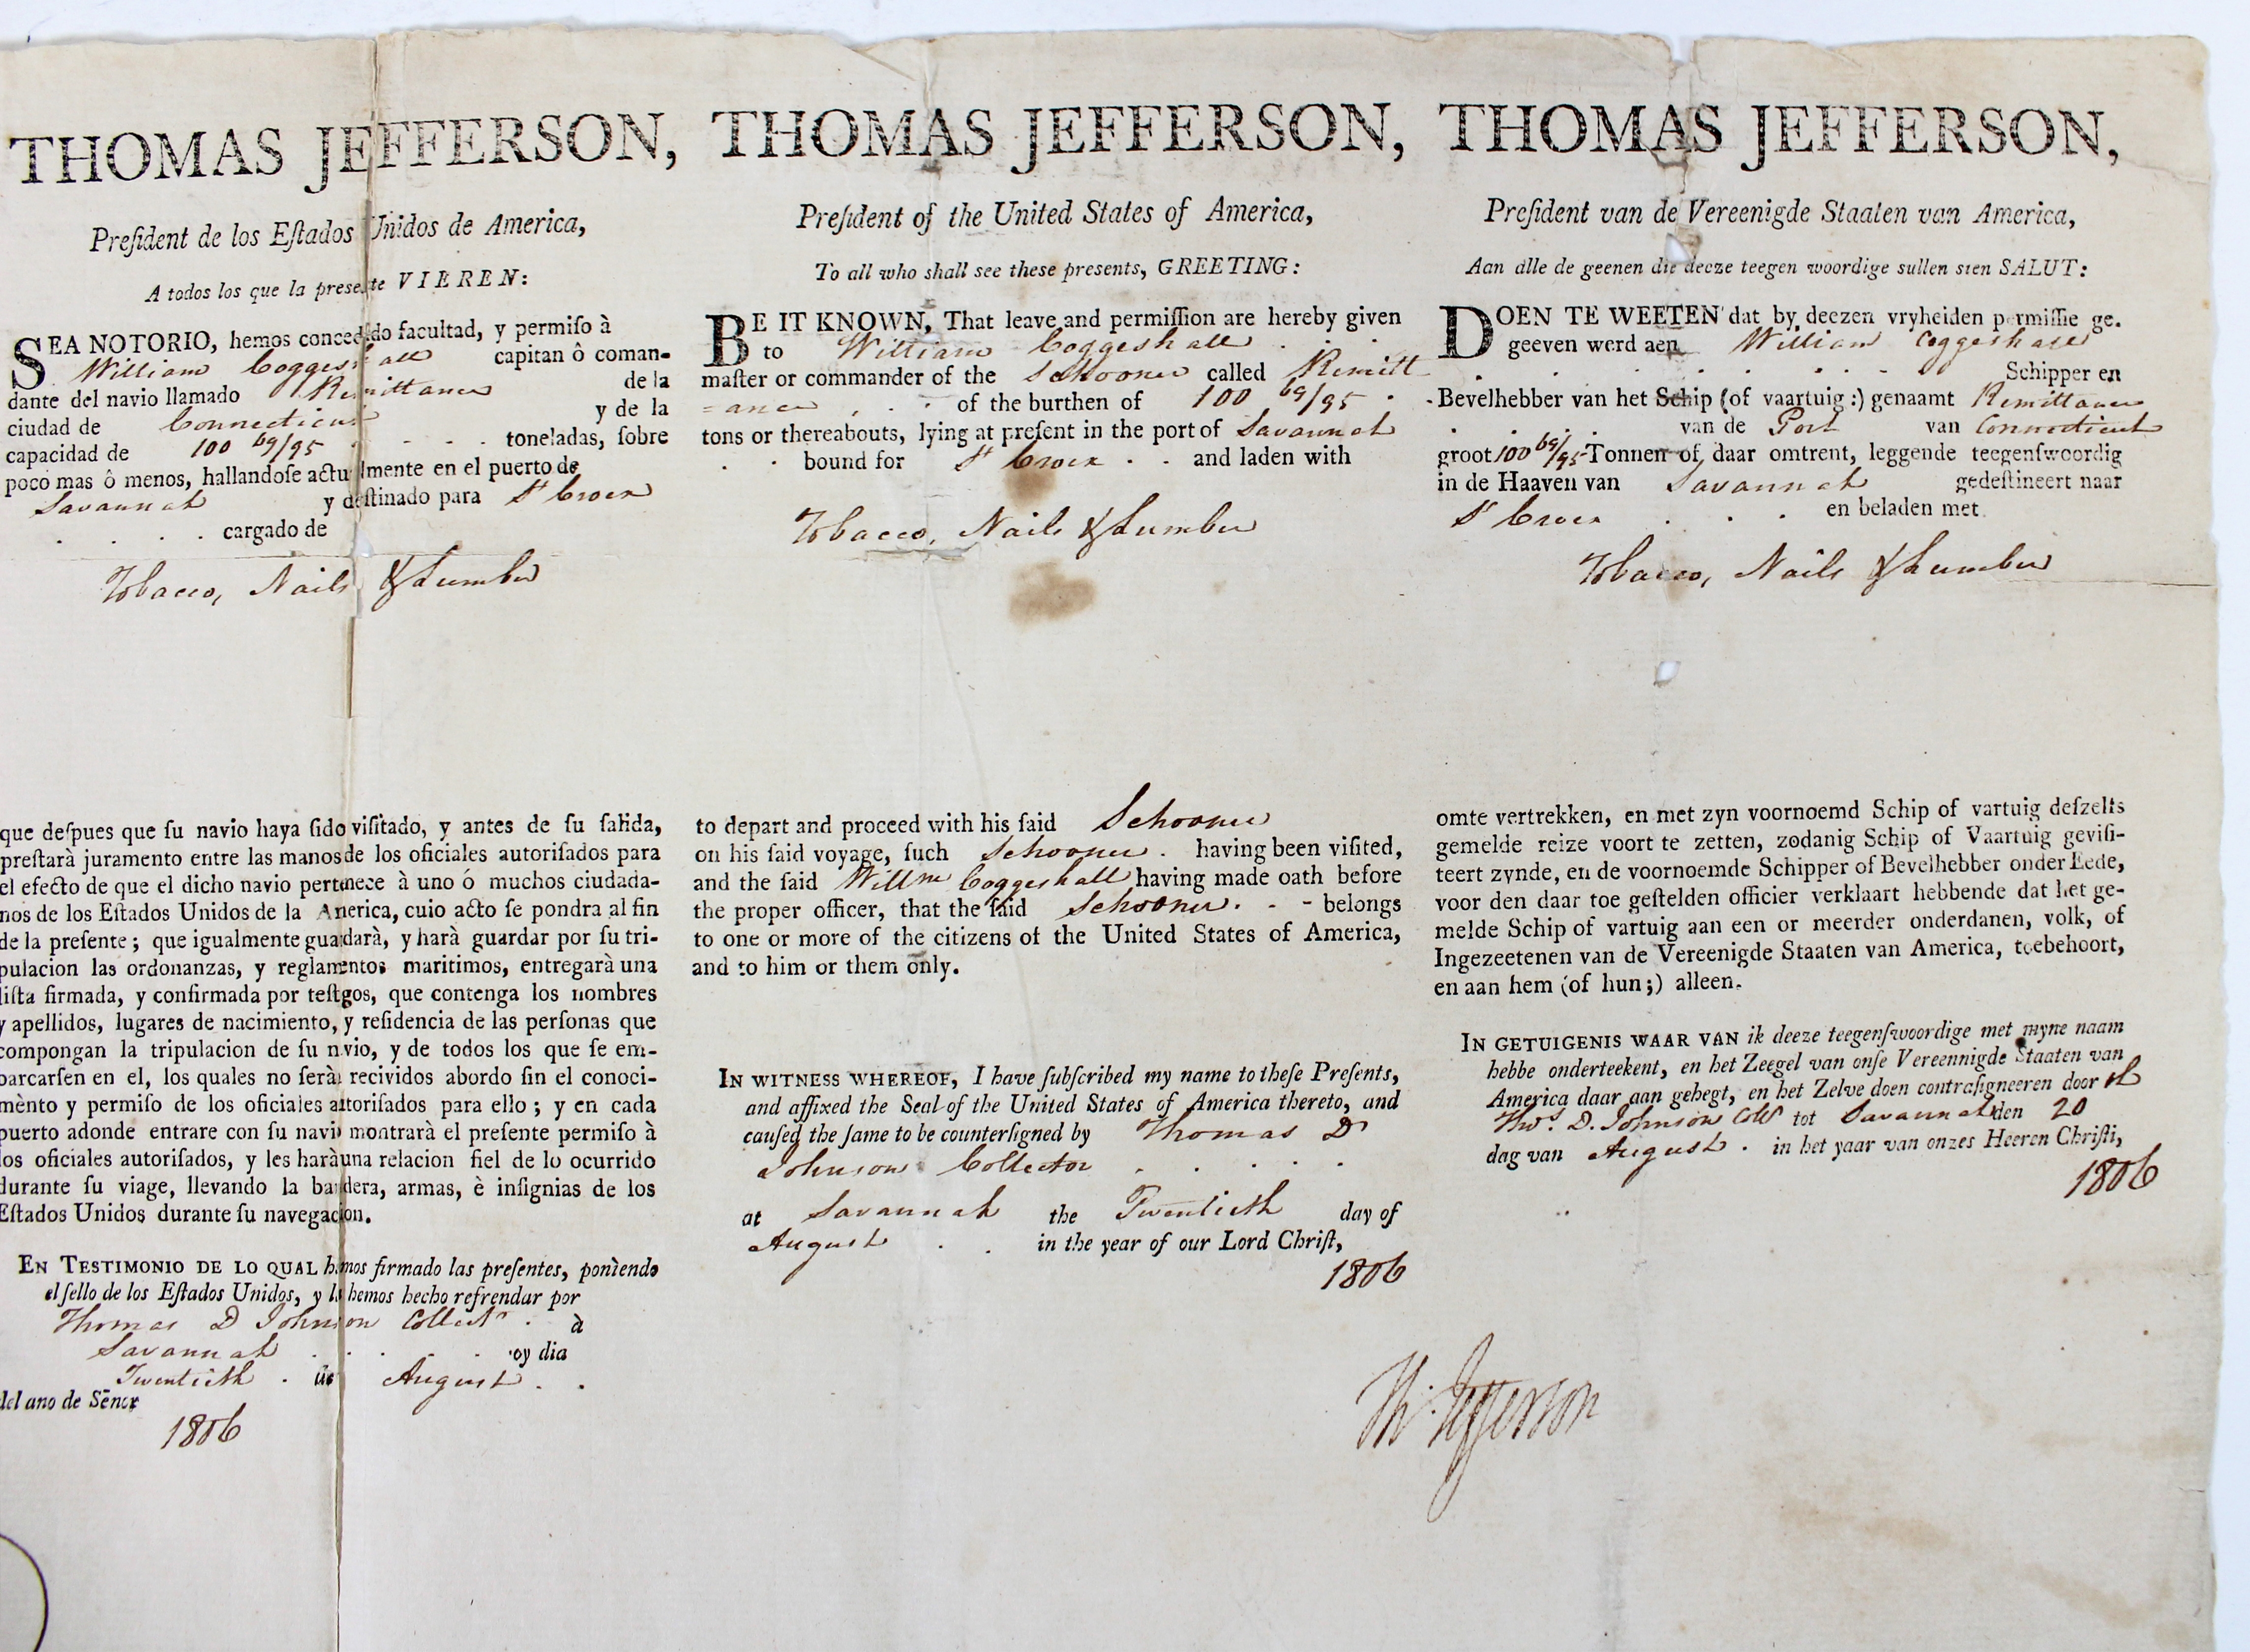 THOMAS JEFFERSON,
Preſident de los Eſtados Unidos de America,
A todos los que la presente VIEREN:
SEA NOTORIO, hemos concedido facultad, y permiſo à
William Coggeshall capitan ô coman-
dante del navio llamado Remittance de la
ciudad de Connecticut y de la
capacidad de 100 69/95 . . . . toneladas, ſobre
poco mas ô menos, hallandoſe actualmente en el puerto de
Savannah y deſtinado para St Croix
. . . . cargado de
Tobacco, Nails & Lumber
que deſpues que ſu navio haya ſido viſitado, y antes de ſu ſalida,
preſtarà juramento entre las manos de los oficiales autoriſados para
el efecto de que el dicho navio pertenece à uno ó muchos ciudada-
nos de los Eſtados Unidos de la America, cuio acto ſe pondra al fin
de la preſente; que igualmente guardarà, y harà guardar por ſu tri-
pulacion las ordonanzas, y reglamentos maritimos, entregarà una
liſta firmada, y confirmada por teſtgos, que contenga los nombres
y apellidos, lugares de nacimiento, y reſidencia de las perſonas que
compongan la tripulacion de ſu navio, y de todos los que ſe em-
barcarſen en el, los quales no ſeràn recividos abordo ſin el conoci-
mènto y permiſo de los oficiales autoriſados para ello; y en cada
puerto adonde entrare con ſu navio montrarà el preſente permiſo à
los oficiales autoriſados, y les harà una relacion fiel de lo ocurrido
durante ſu viage, llevando la bandera, armas, è inſignias de los
Eſtados Unidos durante ſu navegacion.
EN TESTIMONIO DE LO QUAL hemos firmado las preſentes, ponìendo
el ſello de los Eſtados Unidos, y lo hemos hecho refrendar por
Thomas D Johnson Collectr . à
Savannah . . . . oy dia
Twentieth . de August . .
del ano de Sēnor
1806
THOMAS JEFFERSON,
Preſident of the United States of America,
To all who shall see these presents, GREETING:
BE IT KNOWN, That leave and permiſſion are hereby given
to William Coggeshall . . .
maſter or commander of the Schooner called Remitt
=ance . . . of the burthen of 100 69/95 .
tons or thereabouts, lying at preſent in the port of Savannah
. . bound for St Croix . . and laden with
Tobacco, Nails & Lumber
to depart and proceed with his ſaid Schooner
on his ſaid voyage, ſuch Schooner . having been viſited,
and the ſaid Willm Coggeshall having made oath before
the proper officer, that the ſaid Schooner . . - belongs
to one or more of the citizens of the United States of America,
and to him or them only.
IN WITNESS WHEREOF, I have ſubſcribed my name to theſe Preſents,
and affixed the Seal of the United States of America thereto, and
cauſed the ſame to be counterſigned by Thomas D
Johnson Collector . . . . .
at Savannah the Twentieth day of
August . . in the year of our Lord Chriſt,
1806
THOMAS JEFFERSON,
Preſident van de Vereenigde Staaten van America,
Aan alle de geenen die deeze teegen woordige sullen sien SALUT:
DOEN TE WEETEN dat by deezen vryheiden permiſſie ge.
geeven werd aen William Coggeshall
. . . . . . . . Schipper en
Bevelhebber van het Schip (of vaartuig:) genaamt Remittance
. . . . van de Port van Connecticut
groot 100 69/95 Tonnen of, daar omtrent, leggende teegenſwoordig
in de Haaven van Savannah gedeſtineert naar
St Croix . . . en beladen met
Tobacco, Nails & Lumber
omte vertrekken, en met zyn voornoemd Schip of vartuig deſzelts
gemelde reize voort te zetten, zodanig Schip of Vaartuig geviſi-
teert zynde, en de voornoemde Schipper of Bevelhebber onder Eede,
voor den daar toe geſtelden officier verklaart hebbende dat het ge-
melde Schip of vartuig aan een or meerder onderdanen, volk, of
Ingezeetenen van de Vereenigde Staaten van America, toebehoort,
en aan hem (of hun;) alleen.
IN GETUIGENIS WAAR VAN ik deeze teegenſwoordige met myne naam
hebbe onderteekent, en het Zeegel van onſe Vereennigde Staaten van
America daar aan gehegt, en het Zelve doen contraſigneeren door
Thos. D. Johnson Collr tot Savannah den 20
dag van August . in het yaar van onzes Heeren Chriſti,
1806
Th: Jefferson